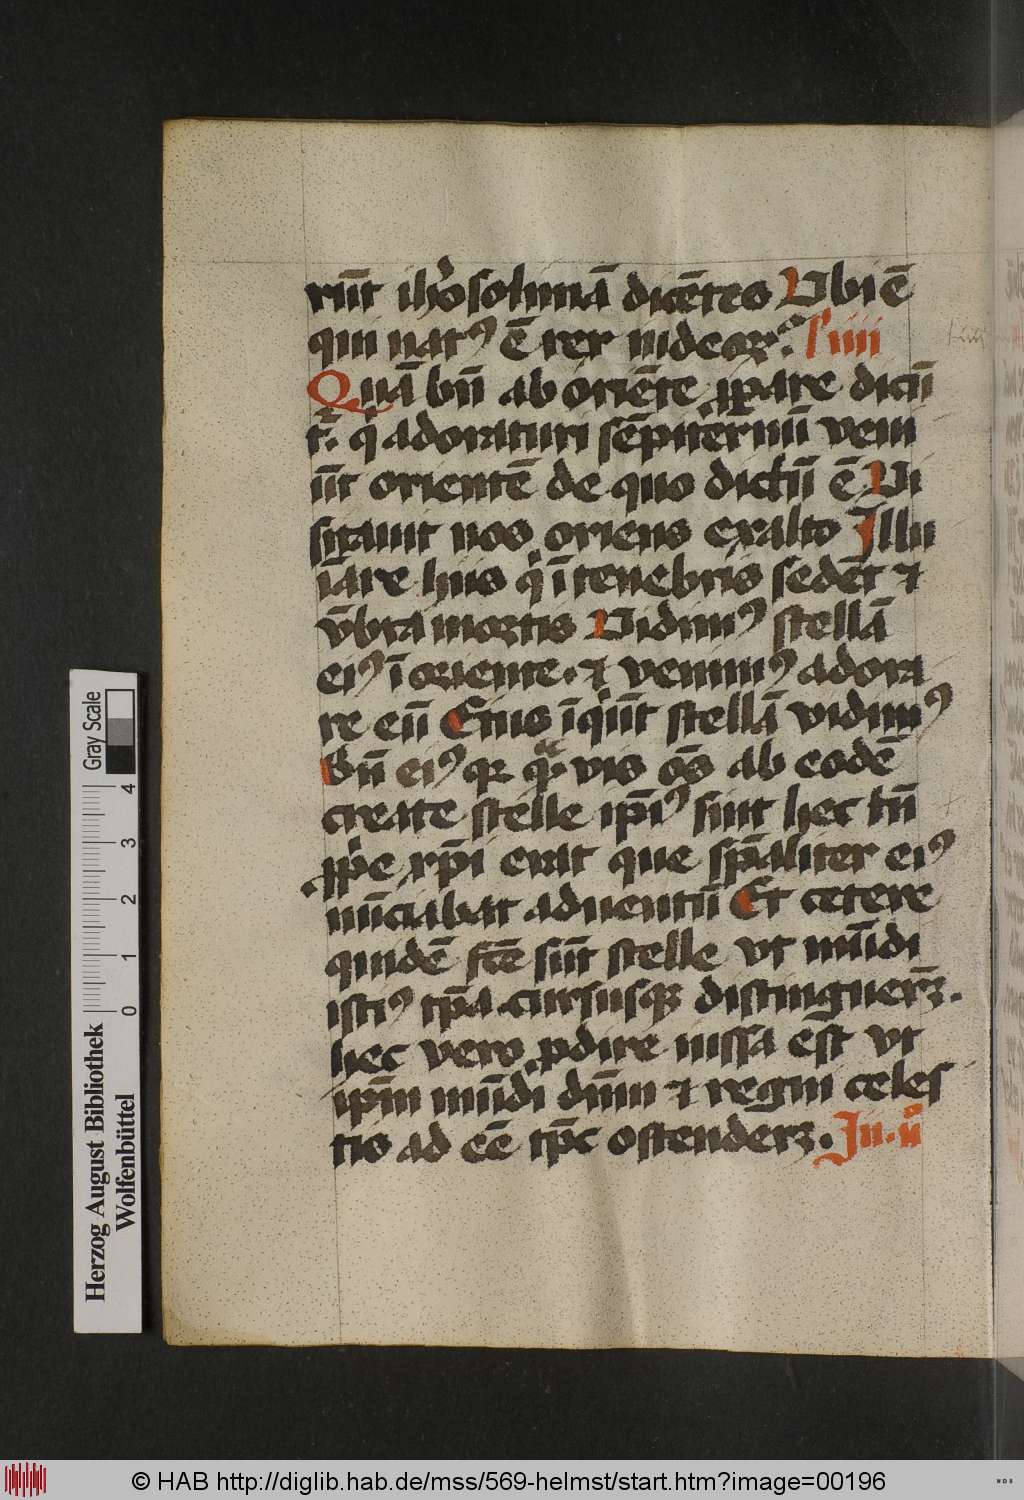 rūt ihr̄osolimā dicētes Ubi ē
qui natꝰ ē rex iudeoꝝ. S iiii
Quā bn̄ ab oriēte ꝓpare dicū
t᷑. qi adoraturi sēpiternū veni
ūt orientē de quo dictū ē Vi
sitauit nos oriens exalto Illu
īare hiis qi ī tenebris sedēt ⁊
v̄bra mortis Vidimꝰ stellā
eiꝰ ī oriente. ⁊ venimꝰ adora
re eū Etius īqiūt stellā vidimꝰ
Bn̄ eiꝰ qꝛ qꝫ.vis oēs ab eodē
create stelle ip̄iꝰ sint hec tn̄
ꝓpe xp̄i erat que sp̄aliter eiꝰ
nūciabat aduentū Et cetere
quidē fc̄e sūt stelle vt mūdi
istiꝰ tp̄a cursusqꝫ distinguerēt.
hec vero ꝓdire iussa est vt
ip̄m mūdi dn̄m ⁊ regni celes
tis ad eē tp̄c ostenderꝫ. In. ii
Herzog August Bibliothek
Wolfenbüttel
0 1 2 3 4
Gray Scale
© HAB http://diglib.hab.de/mss/569-helmst/start.htm?image=00196